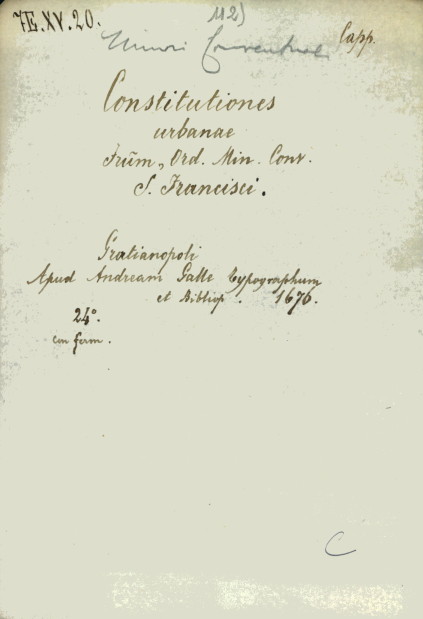 7E.XV.20.
112)
Capp.
Minori Conventuali
Constitutiones
urbanae
Frūm, Ord. Min. Conv.
S. Francisci.
Gratianopoli
Apud Andream Galle typographum
et Bibliop. 1676.
24°.
con ferm.
C